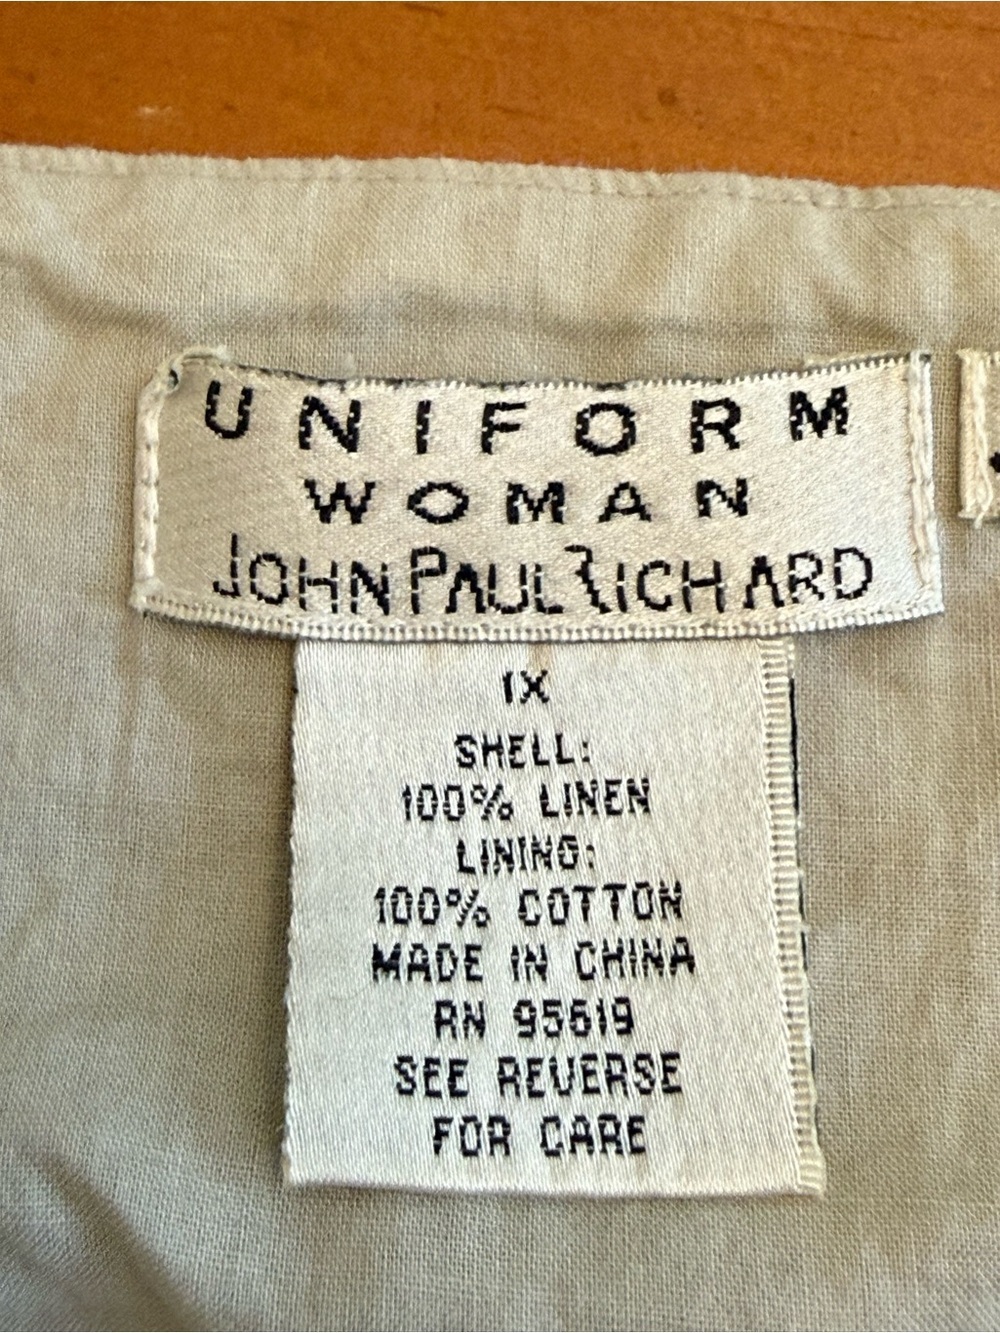 UNIFORM
WOMAN
JOHN PAUL RICHARD
1X
SHELL:
100% LINEN
LINING:
100% COTTON
MADE IN CHINA
RN 95619
SEE REVERSE
FOR CARE